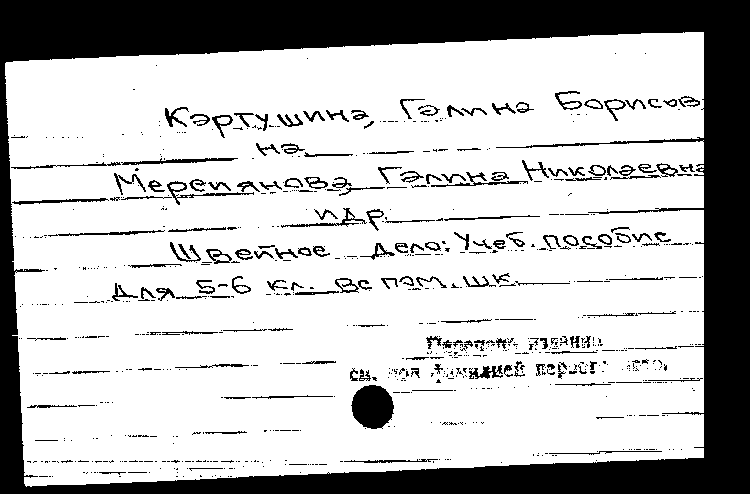 Картушина, Галина Борисов
на,
Мерсиянова, Галина Николаевна
и др.
Швейное дело: Учеб. пособие
для 5-6 кл. вспом. шк.
Перечень издания
см. под фамилией первого